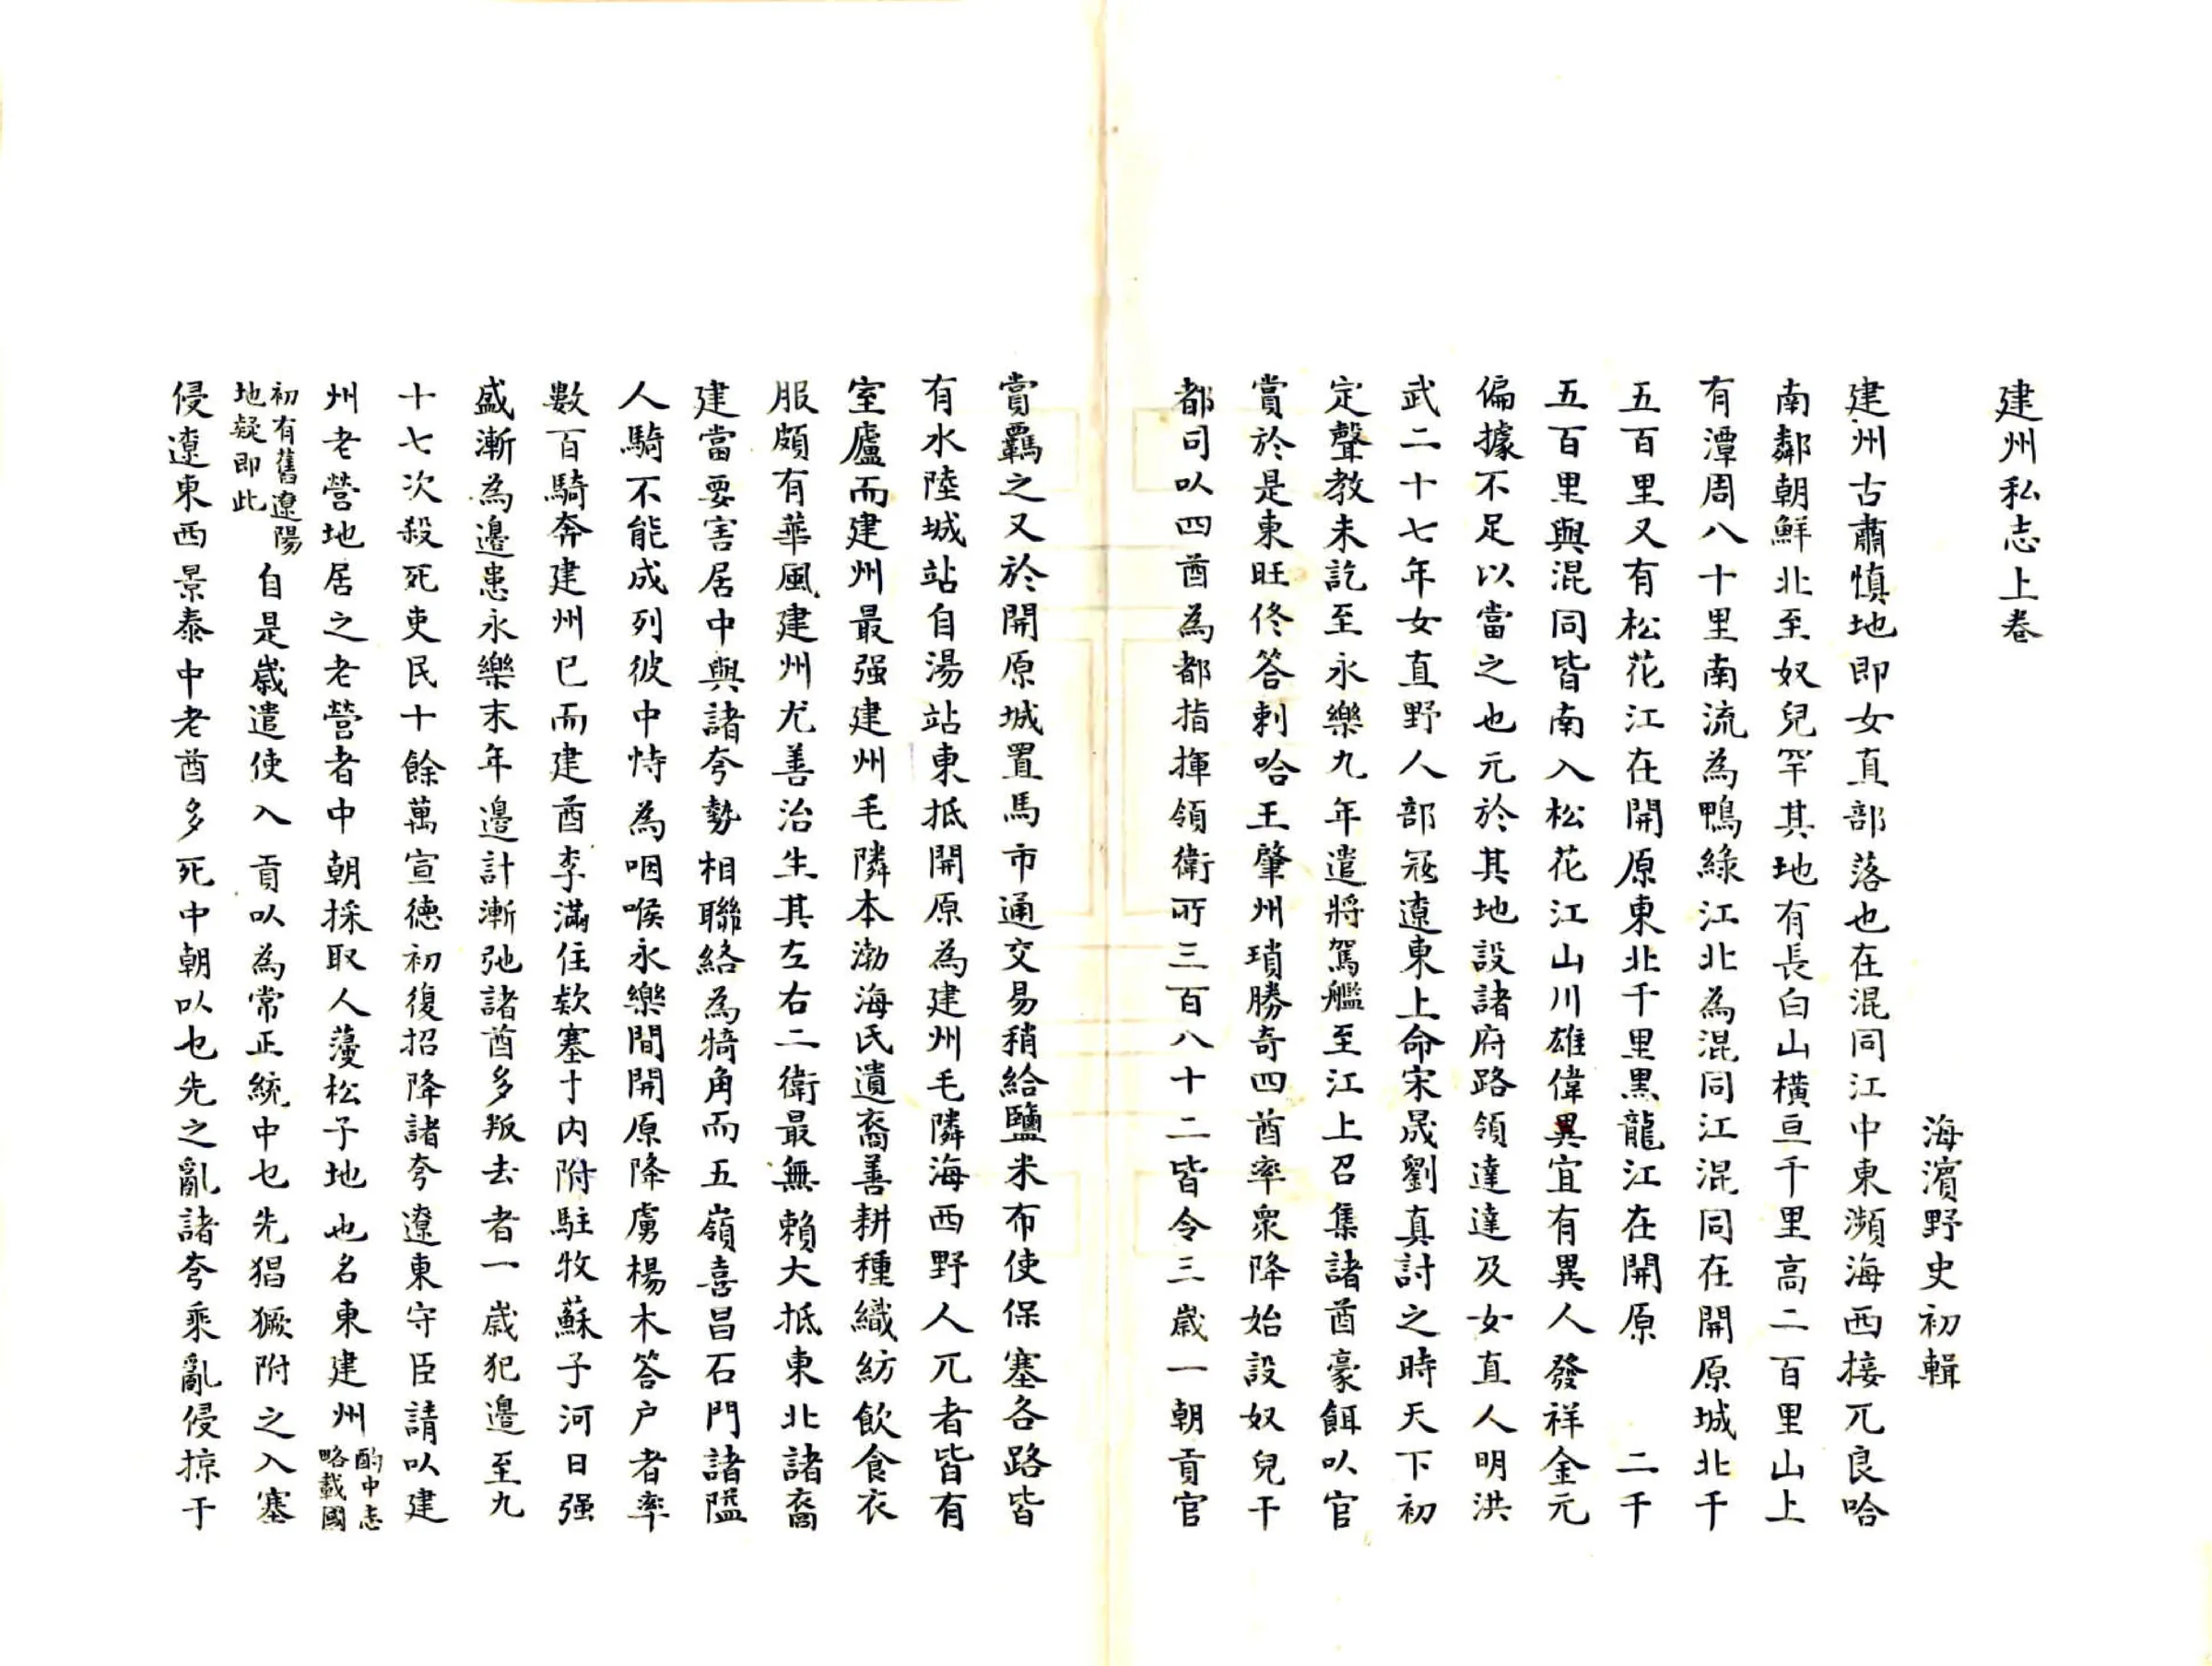 建州私志上卷
海濵野史初輯
建州古肅慎地即女直部落也在混同江中東瀕海西接兀良哈
南鄰朝鮮北至奴兒罕其地有長白山橫亘千里高二百里山上
有潭周八十里南流為鴨綠江北為混同江混同在開原城北千
五百里又有松花江在開原東北千里黑龍江在開原 二千
五百里與混同皆南入松花江山川雄偉異宜有異人發祥金元
偏據不足以當之也元於其地設諸府路領達達及女直人明洪
武二十七年女直野人部寇遼東上命宋晟劉真討之時天下初
定聲教未訖至永樂九年遣將駕艦至江上召集諸酋豪餌以官
賞於是東旺佟答剌哈王肇州瑣勝奇四酋率衆降始設奴兒干
都司以四酋為都指揮領衛所三百八十二皆令三歲一朝貢官
賞羈之又於開原城置馬市通交易稍給鹽米布使保塞各路皆
有水陸城站自湯站東抵開原為建州毛隣海西野人兀者皆有
室廬而建州最强建州毛隣本渤海氏遺裔善耕種織紡飲食衣
服頗有華風建州尤善治生其左右二衛最無賴大抵東北諸裔
建當要害居中與諸夸勢相聯絡為犄角而五嶺喜昌石門諸隘
人騎不能成列彼中恃為咽喉永樂間開原降虜楊木答户者率
數百騎奔建州已而建酋李滿住欵塞寸内附駐牧蘇子河日强
盛漸為邊患永樂末年邊計漸弛諸酋多叛去者一歲犯邊至九
十七次殺死吏民十餘萬宣德初復招降諸夸遼東守臣請以建
州老營地居之老營者中朝採取人蓡松子地也名東建州酌中志
略載國
初有舊遼陽
地疑即此自是歲遣使入貢以為常正統中乜先猖獗附之入塞
侵遼東西景泰中老酋多死中朝以乜先之亂諸夸乘亂侵掠于